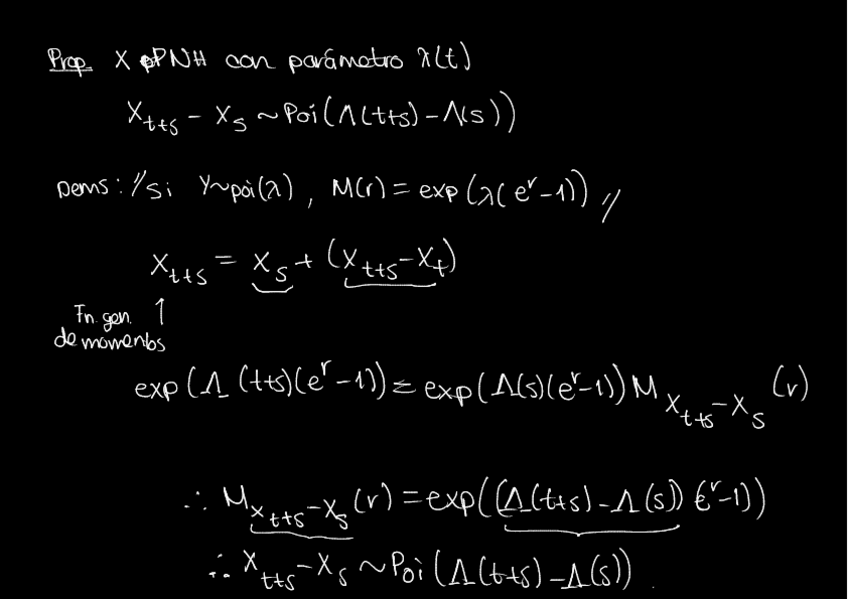 Prop. X pPNH con parámetro λ(t)
X_{t+s} - X_s ~ Poi(Λ(t+s) - Λ(s))
Dems: // Si Y~poi(λ), M(r) = exp(λ(e^r - 1)) //
X_{t+s} = X_s + (X_{t+s} - X_t)
Fn. gen. ↑
de momentos
exp(Λ(t+s)(e^r - 1)) = exp(Λ(s)(e^r - 1)) M_{X_{t+s} - X_s}(r)
∴ M_{X_{t+s} - X_s}(r) = exp((Λ(t+s) - Λ(s))(e^r - 1))
∴ X_{t+s} - X_s ~ Poi(Λ(t+s) - Λ(s)).